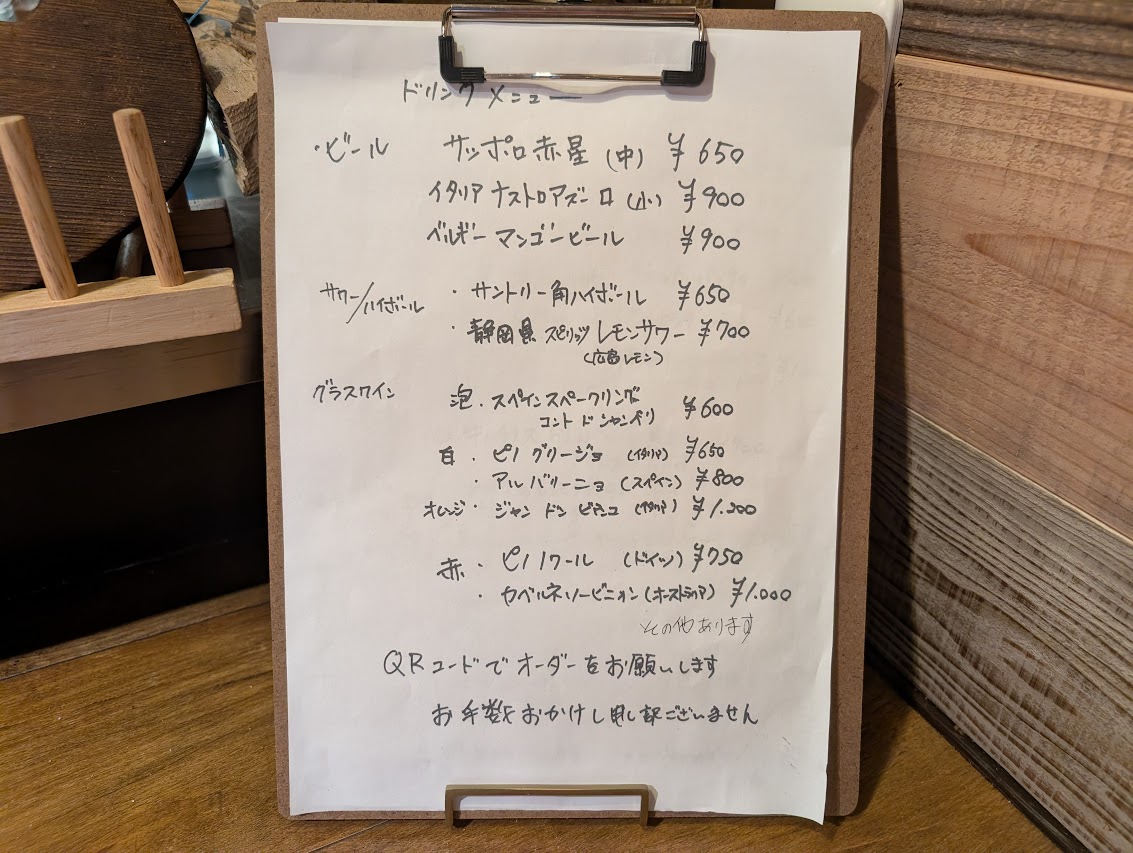 ドリンクメニュー
・ビール サッポロ赤星(中) ¥650
イタリア ナストロアズーロ(小) ¥900
ベルギー マンゴービール ¥900
サワー/ハイボール ・サントリー角ハイボール ¥650
・静岡県 スピリッツ レモンサワー ¥700
(広島レモン)
グラスワイン 泡・スペインスパークリング ¥600
コント ド シャンベリ
白・ピノ グリージョ (イタリア) ¥650
・アルバリーニョ (スペイン) ¥800
オレンジ・ジャン ドン ビアンコ (イタリア) ¥1.200
赤・ピノノワール (ドイツ) ¥750
・カベルネソービニョン (オーストラリア) ¥1.000
その他あります
QRコードでオーダーをお願いします
お手数をおかけし申し訳ございません